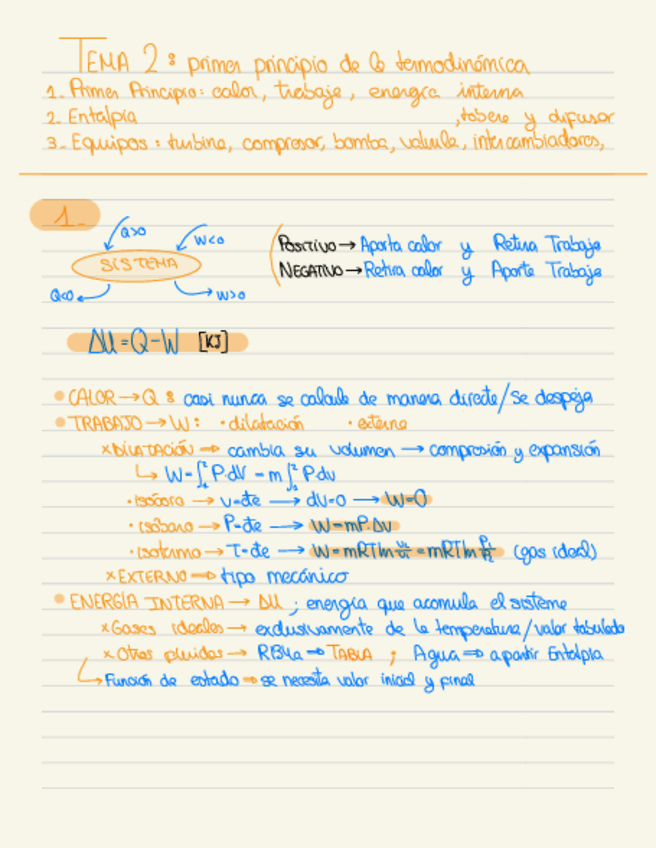 TEMA 2: primer principio de la termodinámica
1. Primer Principio: calor, trabajo, energía interna
2. Entalpía
3. Equipos: turbina, compresor, bomba, valvula, intercambiadores, tobera y difusor
1.
Q>0
W<0
SISTEMA
Q<0
W>0
POSITIVO → Aporta calor y Retira Trabajo
NEGATIVO → Retira calor y Aporta Trabajo
ΔU = Q - W [KJ]
• CALOR → Q: casi nunca se calcula de manera directa/se despeja
• TRABAJO → W: · dilatación · externo
× DILATACIÓN ⇒ cambia su volumen → compresión y expansión
↳ W = ∫₁² P·dV = m ∫₁² P·dv
· isócora → v=cte → dV=0 → W=0
· isóbara → P=cte → W=mP·Δv
· isotermo → T=cte → W=mRTln v₂/v₁ = mRTln P₁/P₂ (gas ideal)
× EXTERNO ⇒ tipo mecánico
• ENERGÍA INTERNA → ΔU; energía que acumula el sistema
× Gases ideales → exclusivamente de la temperatura/valor tabulado
× Otros fluidos → R134a ⇒ TABLA ; Agua ⇒ a partir Entalpía
↳ Función de estado ⇒ se necesita valor inicial y final